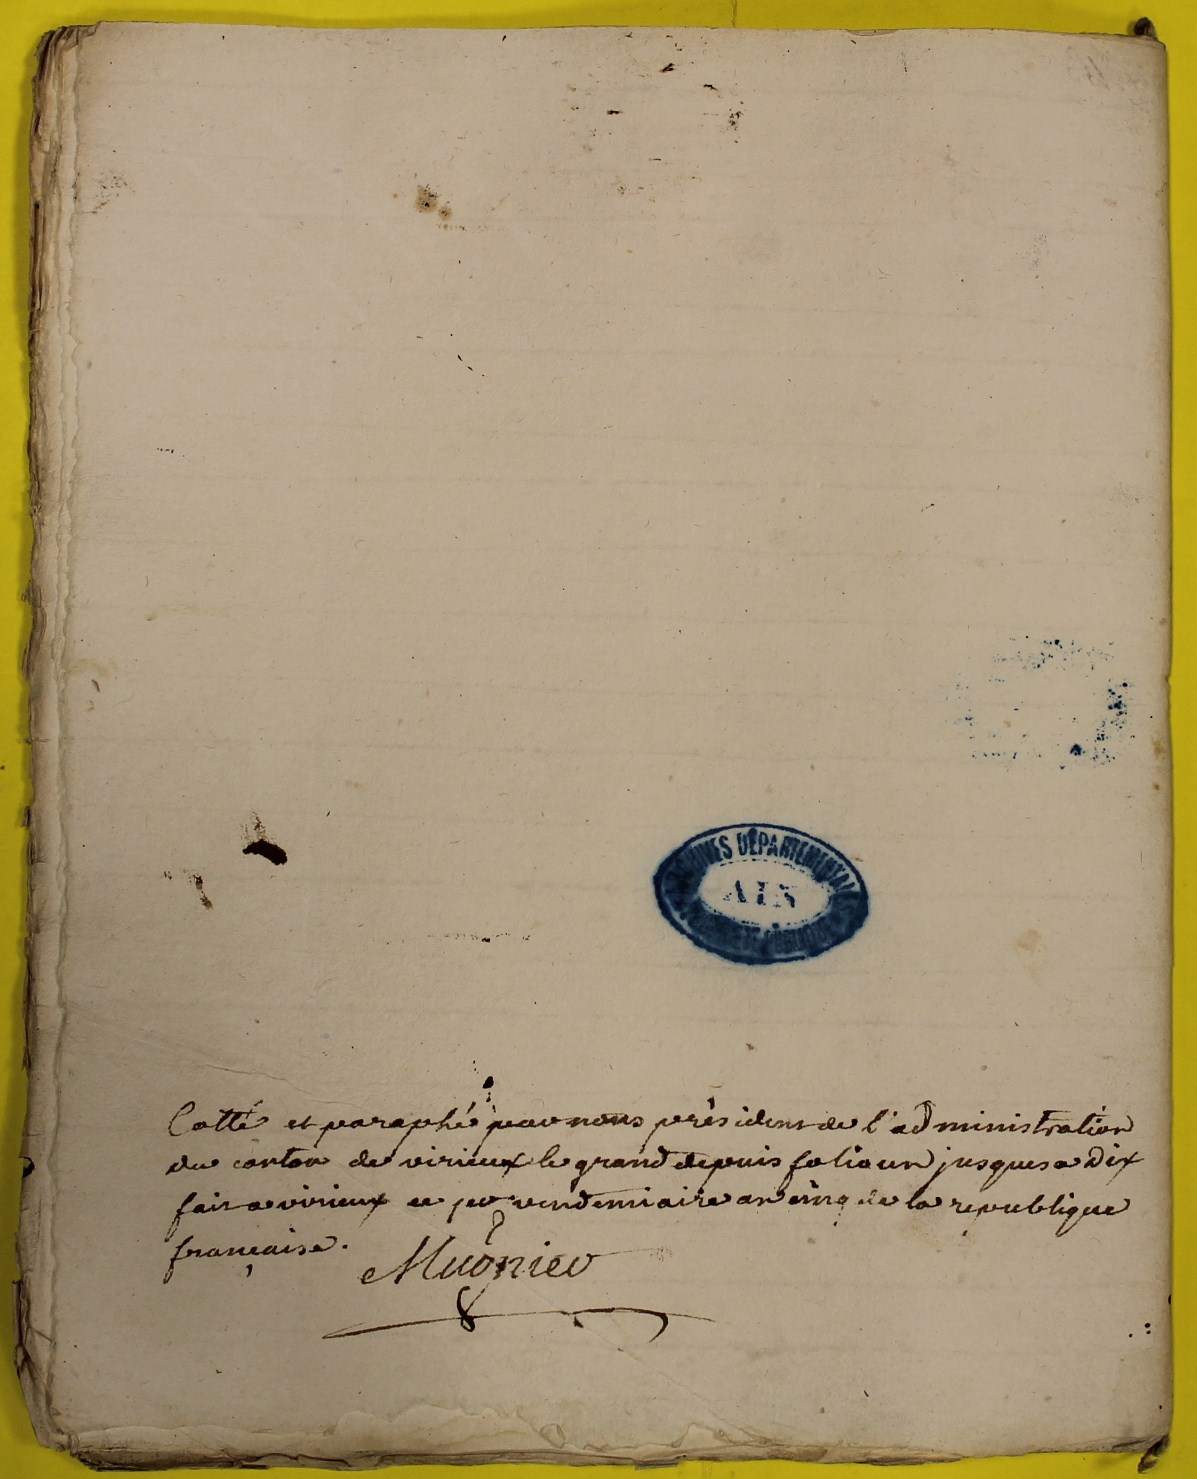 ARCHIVES DÉPARTEMENTALES
AIN
Cotté et paraphé par nous président de l'administration
du canton de virieux le grand depuis folio un jusques a Dix
fait a virieux ce per vendemiaire an cinq de la republique
française.
Mugnier